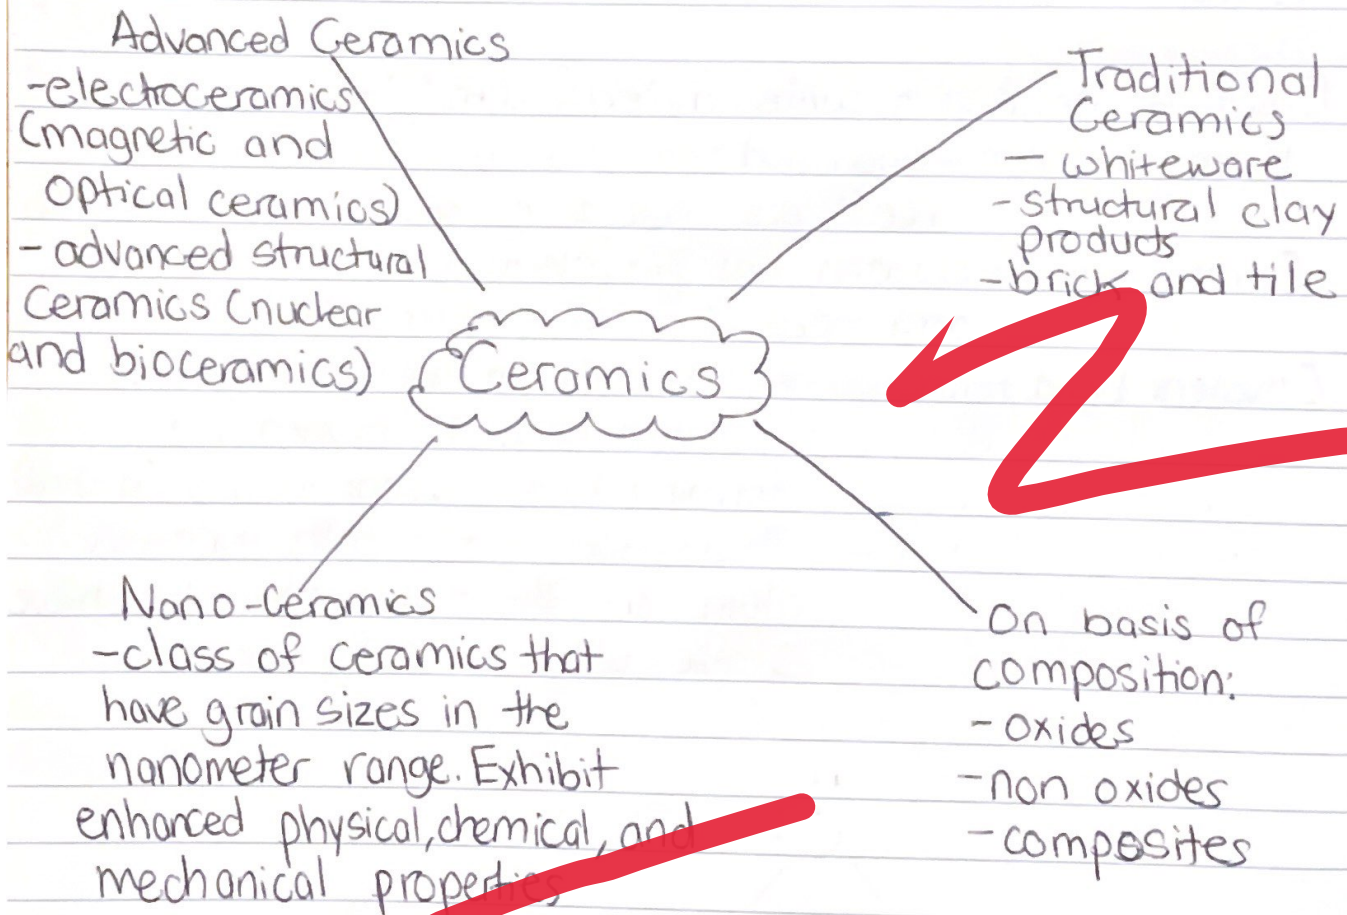 Advanced Ceramics
-electroceramics
(magnetic and
optical ceramics)
- advanced structural
ceramics (nuclear
and bioceramics)
Traditional
Ceramics
- whiteware
-structural clay
products
-brick and tile
Ceramics
Nano-Ceramics
-class of ceramics that
have grain sizes in the
nanometer range. Exhibit
enhanced physical, chemical, and
mechanical properties
On basis of
composition:
- oxides
-non oxides
- composites